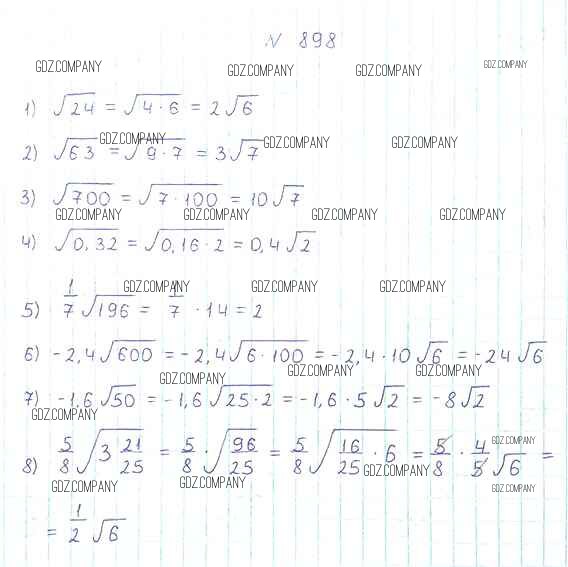 N 898
GDZ.COMPANY GDZ.COMPANY GDZ.COMPANY GDZ.COMPANY
1) √24 = √4·6 = 2√6
GDZ.COMPANY GDZ.COMPANY GDZ.COMPANY
2) √63 = √9·7 = 3√7
3) √700 = √7·100 = 10√7
GDZ.COMPANY GDZ.COMPANY GDZ.COMPANY GDZ.COMPANY
4) √0,32 = √0,16·2 = 0,4√2
GDZ.COMPANY GDZ.COMPANY GDZ.COMPANY
5) 1/7 √196 = 1/7 · 14 = 2
6) -2,4√600 = -2,4√6·100 = -2,4·10√6 = -24√6
GDZ.COMPANY GDZ.COMPANY GDZ.COMPANY
7) -1,6√50 = -1,6√25·2 = -1,6·5√2 = -8√2
GDZ.COMPANY
8) 5/8 √(3 21/25) = 5/8 · √(96/25) = 5/8 √(16/25 · 6) = 5/8 · 4/5 √6 =
GDZ.COMPANY GDZ.COMPANY GDZ.COMPANY GDZ.COMPANY GDZ.COMPANY
= 1/2 √6